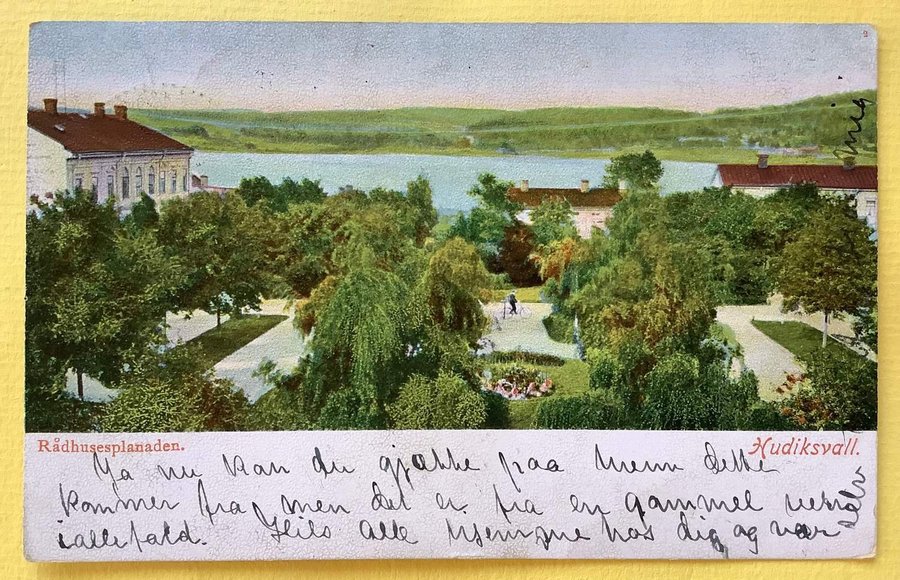 Rådhusesplanaden.
Hudiksvall.
Ja nu kan du gjætte paa hvem dette
kommer fra, men det er fra en gammel
iallefald. Hils alle hjemme hos dig og vær
selv
mig